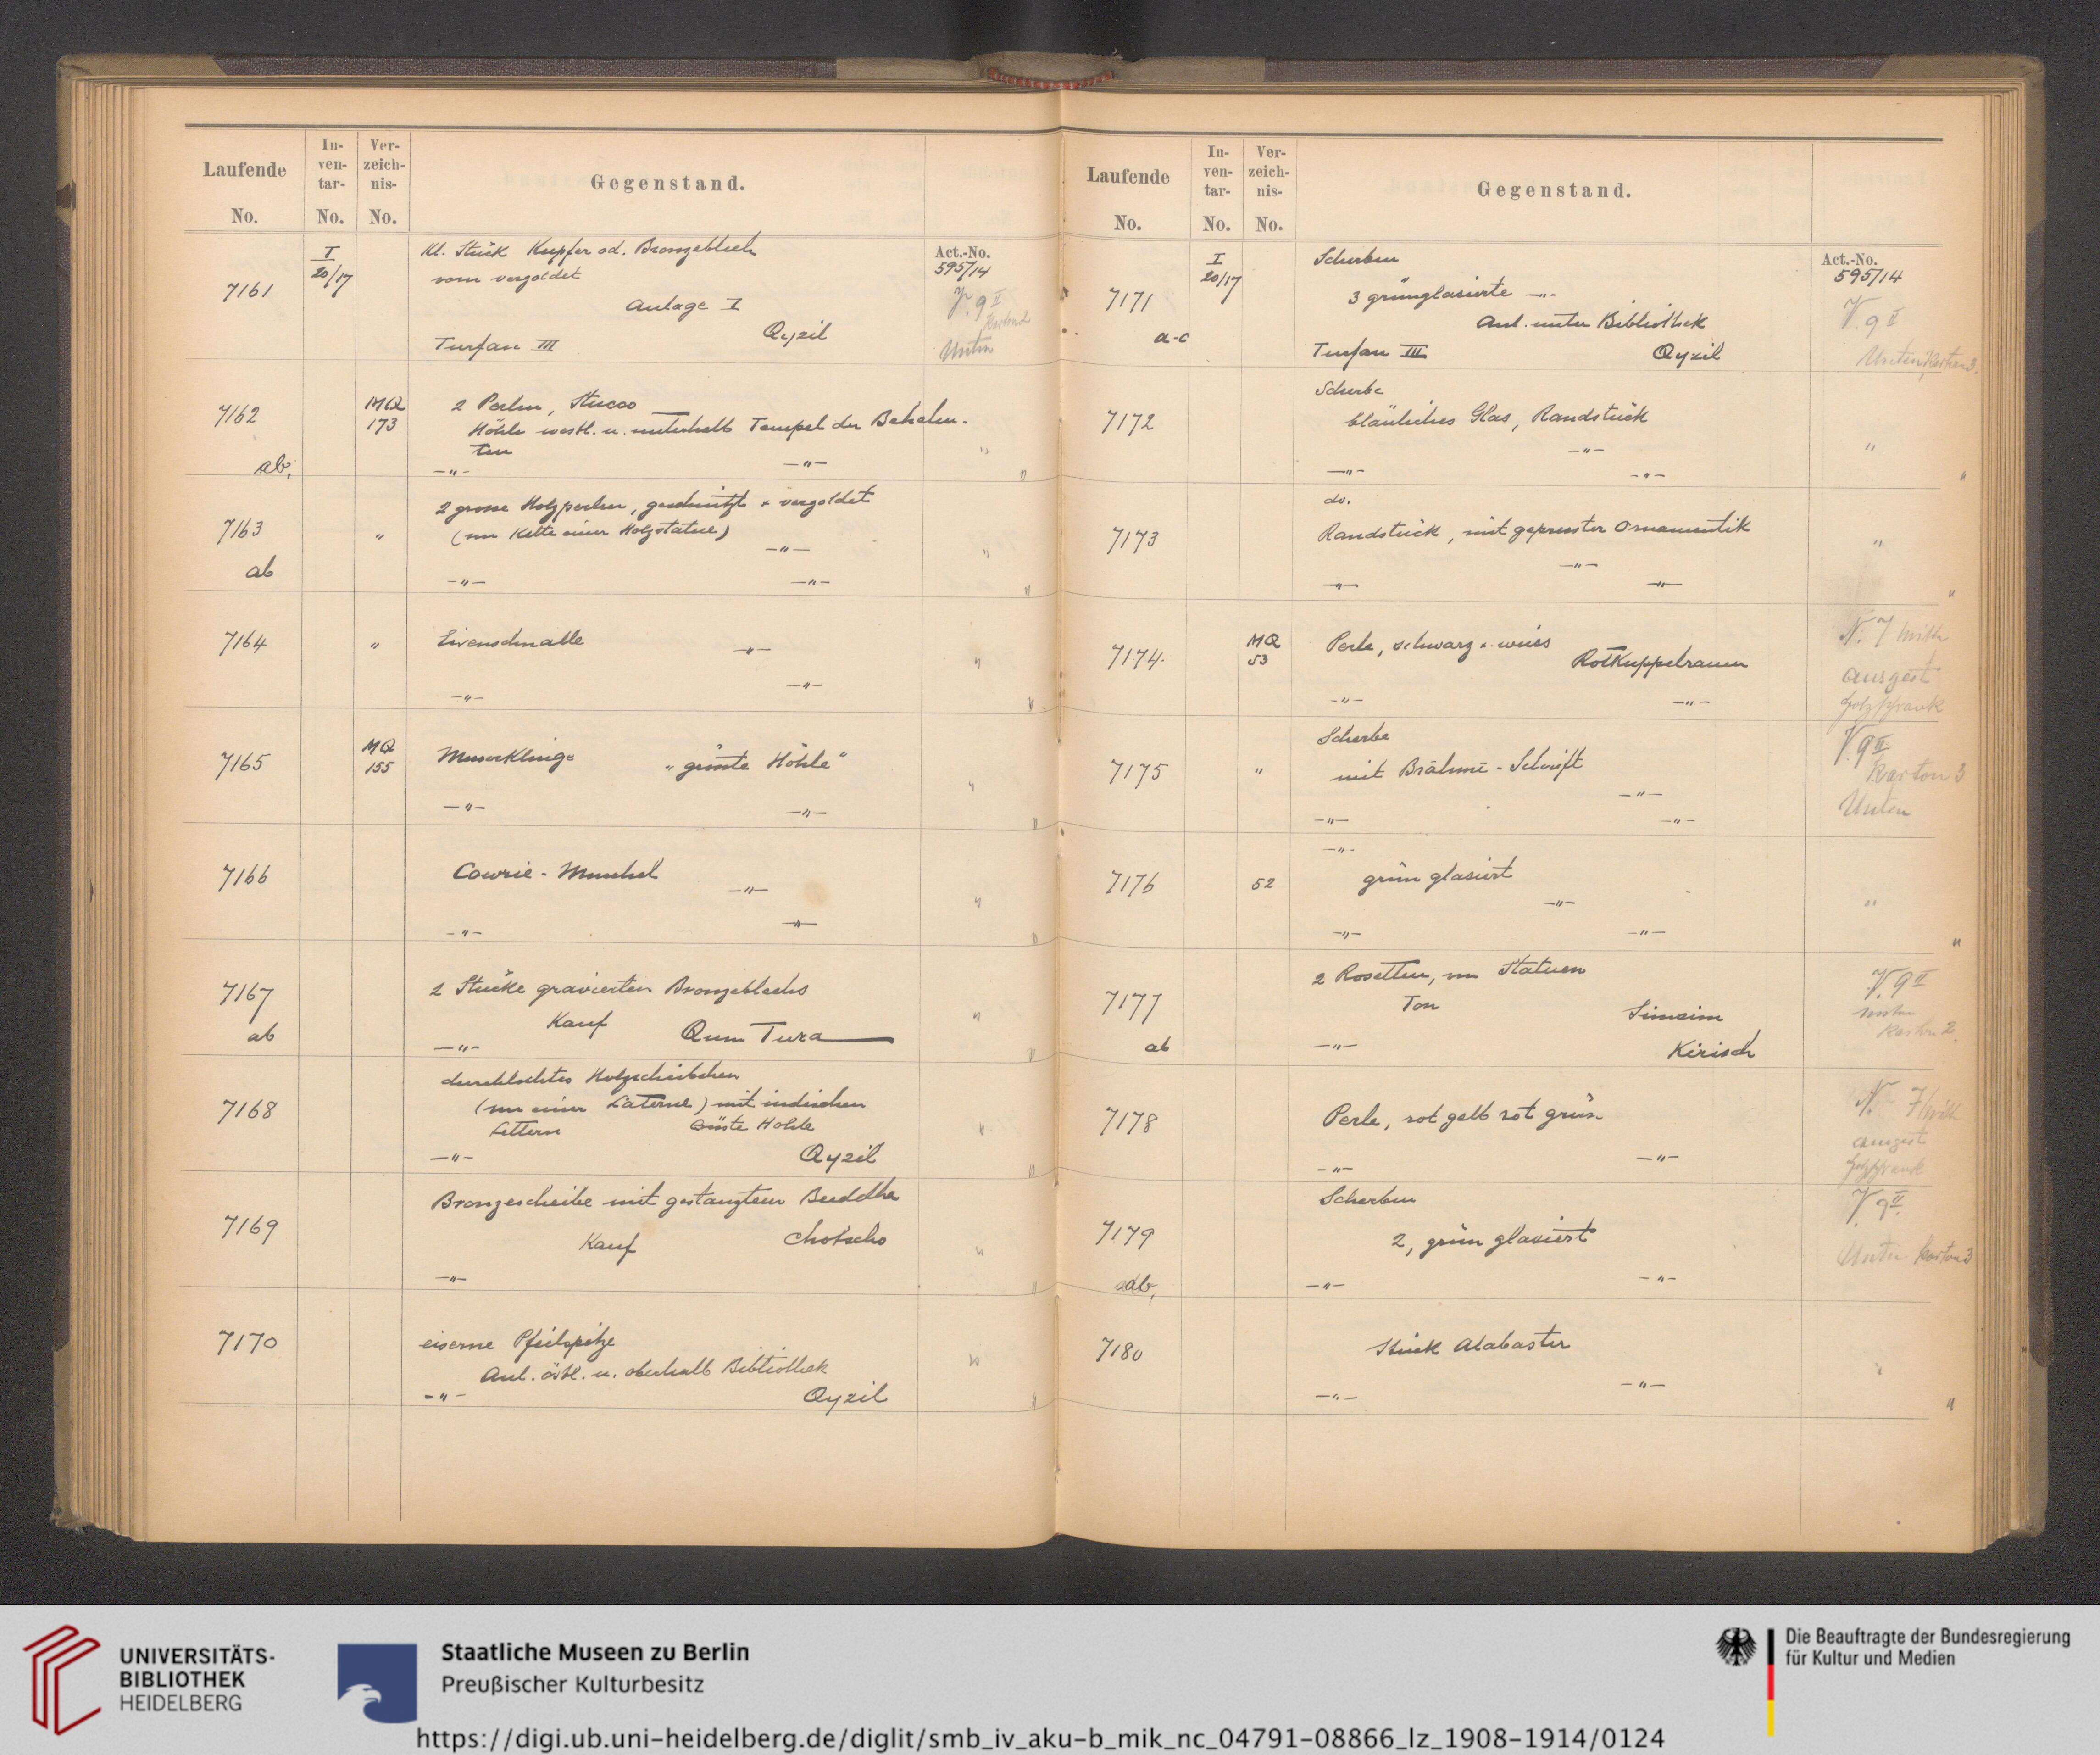 Laufende No.
In-ven-tar- No.
Ver-zeich-nis- No.
Gegenstand.
7161
I
20/17
Kl. Stück Kupfer od. Bronzeblech
vorn vergoldet
Anlage I
Turfan III
Qyzil
Act.-No.
595/14
V. 9 II
Unten
7162
ab.
MQ
173
2 Perlen, Stucco
Höhle westl. u. unterhalb Tempel der Behelm-
ten
—"—
—"—
"
"
7163
ab
"
2 grosse Holzperlen, geschnitzt & vergoldet
(von Kette einer Holzstatue)
—"—
—"—
—"—
"
"
7164
"
Eisenschnalle
—"—
—"—
—"—
"
"
7165
MQ
155
Messerklinge
„grösste Höhle“
—"—
—"—
"
"
7166
Cowrie-Muschel
—"—
—"—
—"—
"
"
7167
ab
2 Stücke gravierten Bronzeblechs
Kauf
Qum Tura
—"—
"
"
7168
durchlochtes Holzscheibchen
(von einer Laterne) mit indischen
Lettern
Grösste Höhle
—"—
Qyzil
"
"
7169
Bronzescheibe mit gestanztem Buddha
Kauf
Chotscho
—"—
"
"
7170
eiserne Pfeilspitze
Anl. östl. u. oberhalb Bibliothek
—"—
Qyzil
"
"
Laufende No.
In-ven-tar- No.
Ver-zeich-nis- No.
Gegenstand.
7171
a-c
I
20/17
Scherben
3 grünglasierte —"—
Anl. unter Bibliothek
Turfan III
Qyzil
Act.-No.
595/14
V. 9 II
Unten, Karton 3.
7172
Scherbe
bläuliches Glas, Randstück
—"—
—"—
—"—
"
"
7173
do.
Randstück, mit gepresster Ornamentik
—"—
—"—
—"—
"
"
7174.
MQ
53
Perle, schwarz & weiss
Rotkuppelraum
—"—
—"—
N. 7 Mitte
ausgest
Holzschrank
7175
"
Scherbe
mit Brāhmī-Schrift
—"—
—"—
—"—
V. 9 II
Karton 3
Unten
7176
52
—"—
grün glasiert
—"—
—"—
—"—
"
"
7177
ab
2 Rosetten, von Statuen
Ton
Simsim
—"—
Kirisch
V. 9 II
unten
Karton 2.
7178
Perle, rot gelb rot grün
—"—
—"—
N. 7 Mitte
ausgest
Holzschrank
7179
ab.
Scherben
2, grün glasiert
—"—
—"—
V. 9 II.
Unten Karton 3
7180
Stück Alabaster
—"—
—"—
"
"
UNIVERSITÄTS-
BIBLIOTHEK
HEIDELBERG
Staatliche Museen zu Berlin
Preußischer Kulturbesitz
Die Beauftragte der Bundesregierung
für Kultur und Medien
https://digi.ub.uni-heidelberg.de/diglit/smb_iv_aku-b_mik_nc_04791-08866_lz_1908-1914/0124